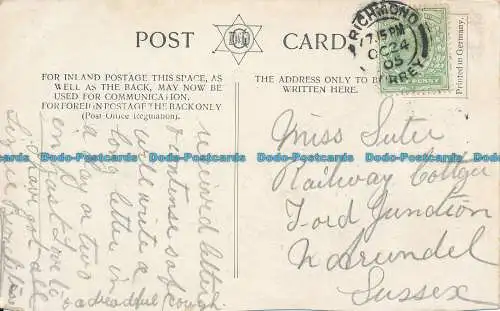 POST CARD
FOR INLAND POSTAGE THIS SPACE, AS
WELL AS THE BACK, MAY NOW BE
USED FOR COMMUNICATION.
FOR FOREIGN POSTAGE THE BACK ONLY
(Post Office Regulation).
THE ADDRESS ONLY TO BE
WRITTEN HERE.
Printed in Germany.
RICHMOND
7.15 PM
OC 24
05
SURREY
Miss Suter
Railway Cottage
Ford Junction
N Arundel
Sussex
received letter
write a
long letter in
a day or two
love to
all
I have got
a dreadful cough.
Dodo-Postcards Dodo-Postcards Dodo-Postcards Dodo-Postcards